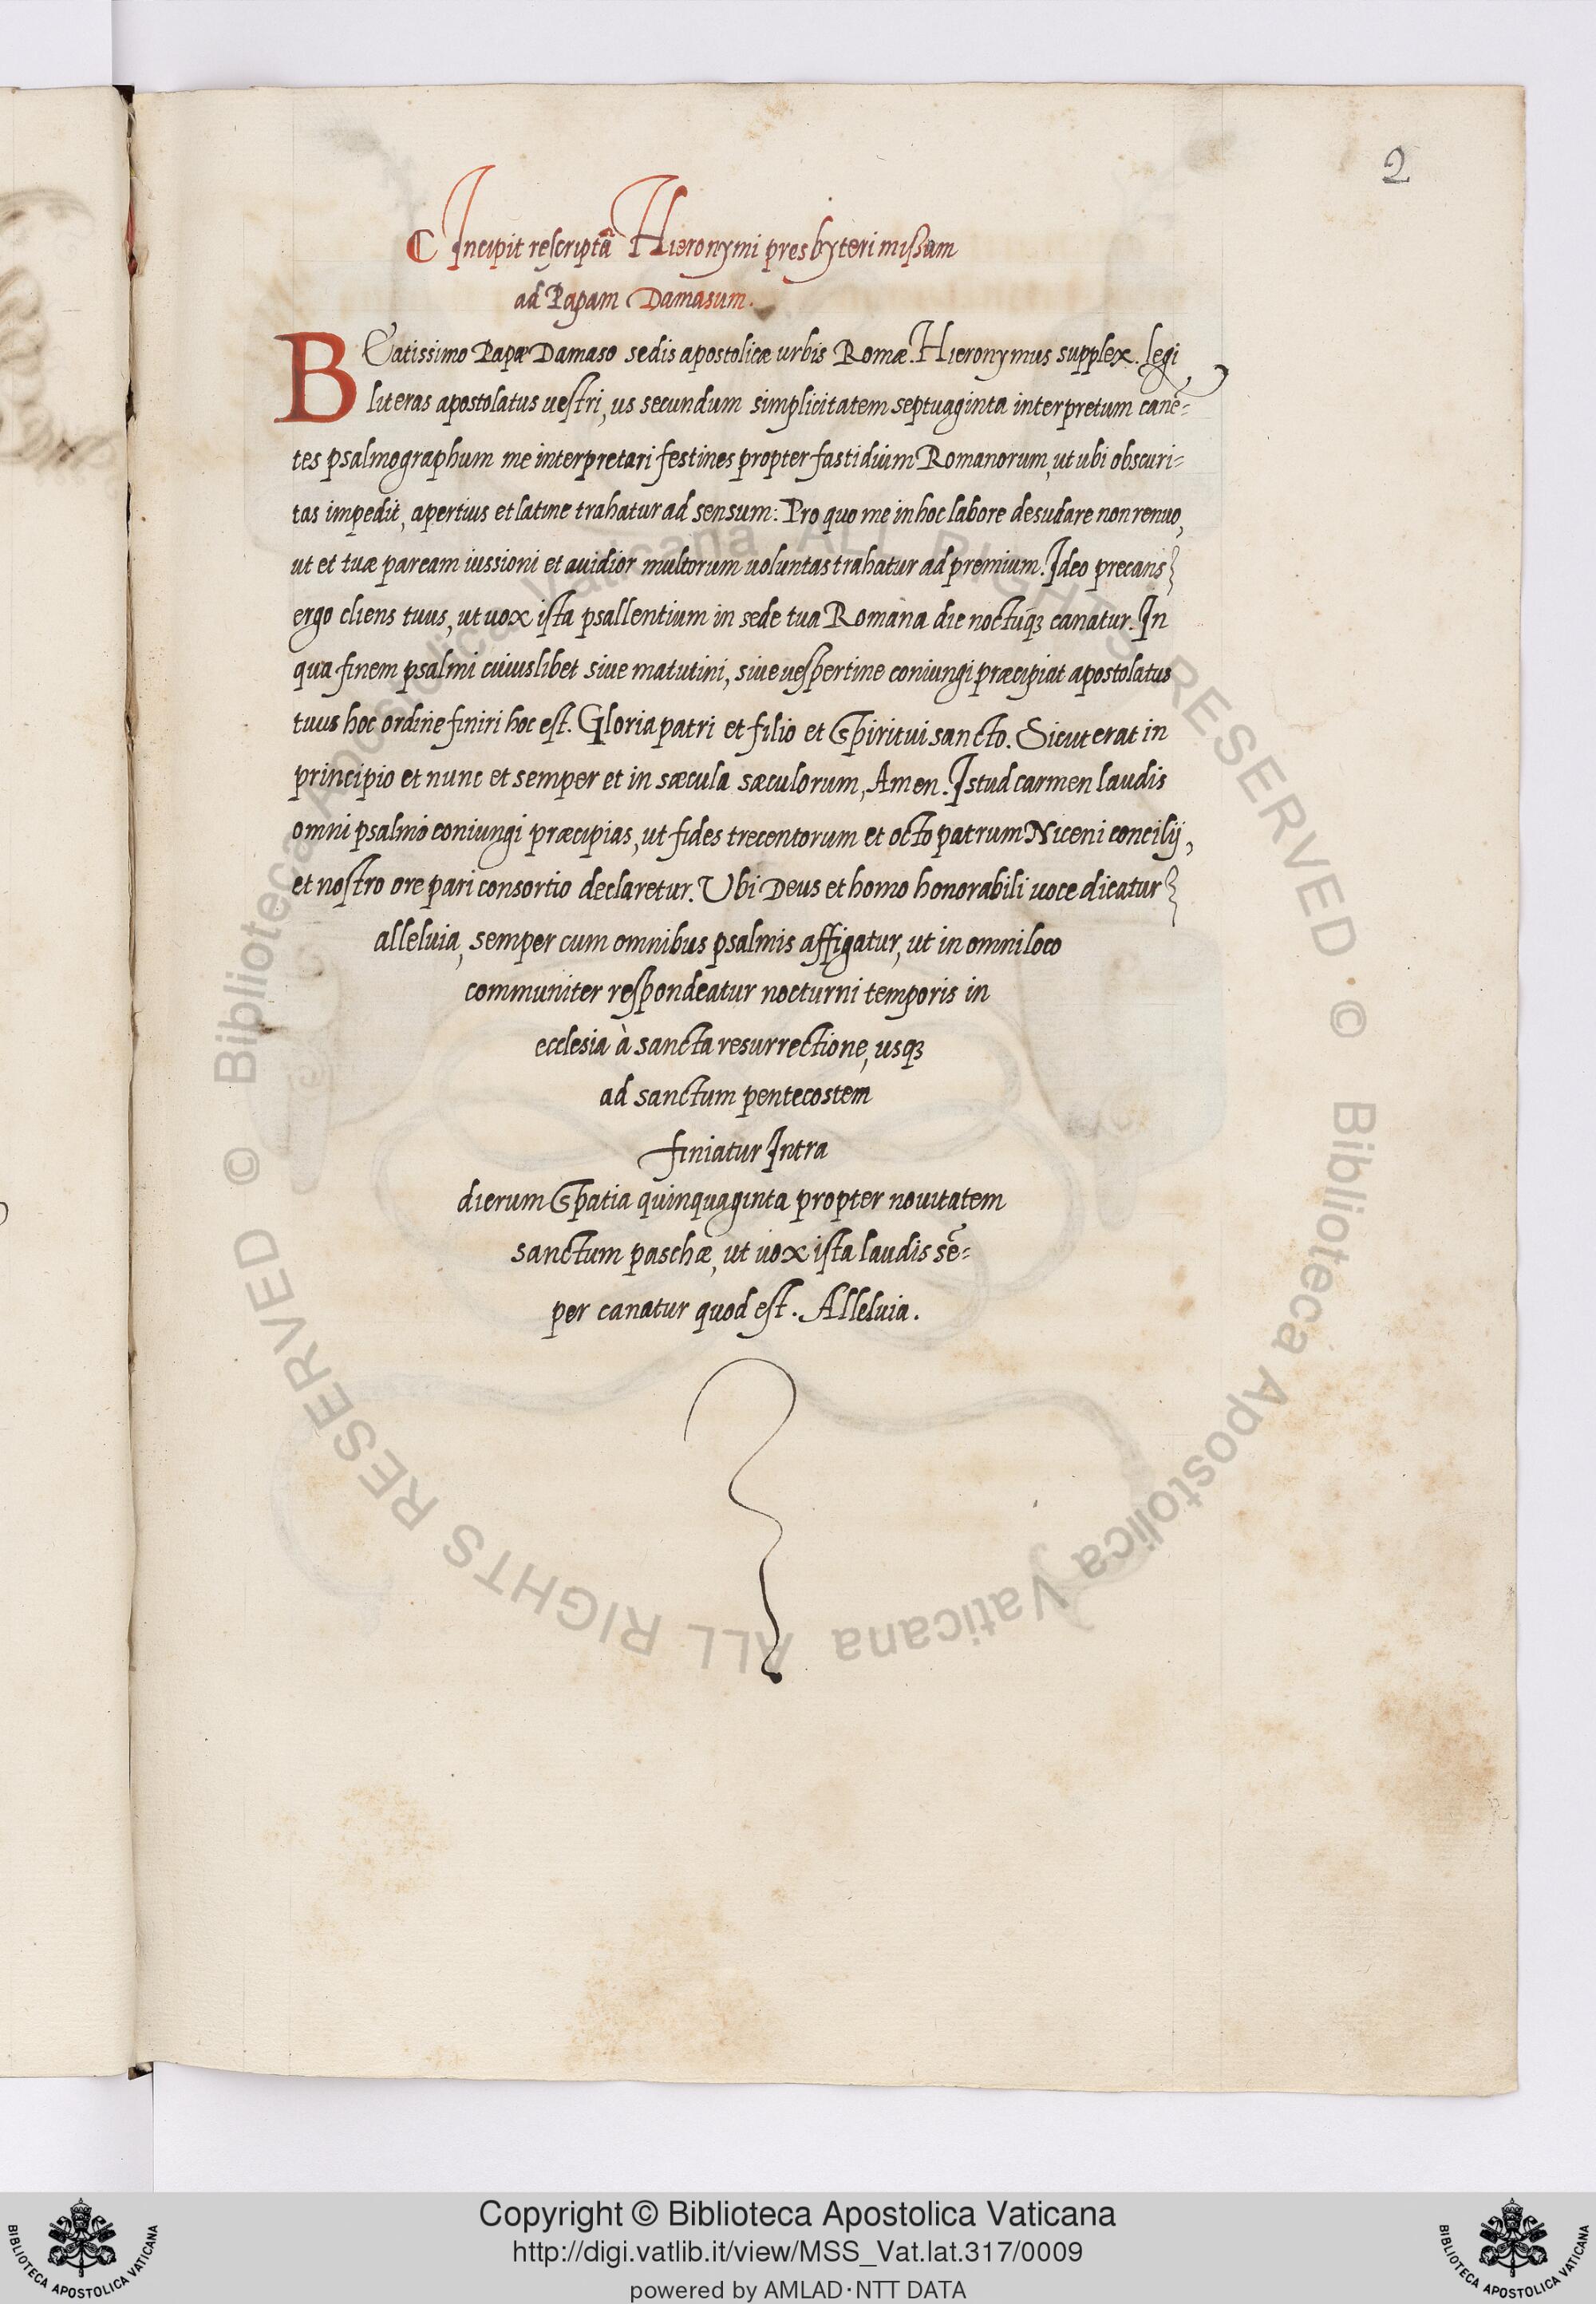 2
℃ Incipit rescriptũ Hieronymi presbyteri missum
ad Papam Damasum.
BEatissimo Papæ Damaso sedis apostolicæ urbis Romæ. Hieronymus supplex. legi
literas apostolatus uestri, us secundum simplicitatem septuaginta interpretum canẽ-
tes psalmographum me interpretari festines propter fastidium Romanorum, ut ubi obscuri-
tas impedit, apertius et latine trahatur ad sensum: Pro quo me in hoc labore desudare non renuo,
ut et tuæ paream iussioni et auidior multorum uoluntas trahatur ad premium. Ideo precans
ergo cliens tuus, ut uox ista psallentium in sede tua Romana die noctuq̃ canatur. In
qua finem psalmi cuiuslibet siue matutini, siue uespertine coniungi præcipiat apostolatus
tuus hoc ordine finiri hoc est. Gloria patri et filio et Spiritui sancto. Sicut erat in
principio et nunc et semper et in sæcula sæculorum, Amen. Istud carmen laudis
omni psalmo coniungi præcipias, ut fides trecentorum et octo patrum Niceni concilij,
et nostro ore pari consortio declaretur. Ubi Deus et homo honorabili uoce dicatur
alleluia, semper cum omnibus psalmis affigatur, ut in omni loco
communiter respondeatur nocturni temporis in
ecclesia à sancta resurrectione, usqꝫ
ad sanctum pentecostem
finiatur Intra
dierum Spatia quinquaginta propter nouitatem
sanctum paschæ, ut uox ista laudis sẽ-
per canatur quod est. Alleluia.
© Biblioteca Apostolica Vaticana ALL RIGHTS RESERVED · © Biblioteca Apostolica Vaticana ALL RIGHTS RESERVED
BIBLIOTECA APOSTOLICA VATICANA
Copyright © Biblioteca Apostolica Vaticana
http://digi.vatlib.it/view/MSS_Vat.lat.317/0009
powered by AMLAD·NTT DATA
BIBLIOTECA APOSTOLICA VATICANA